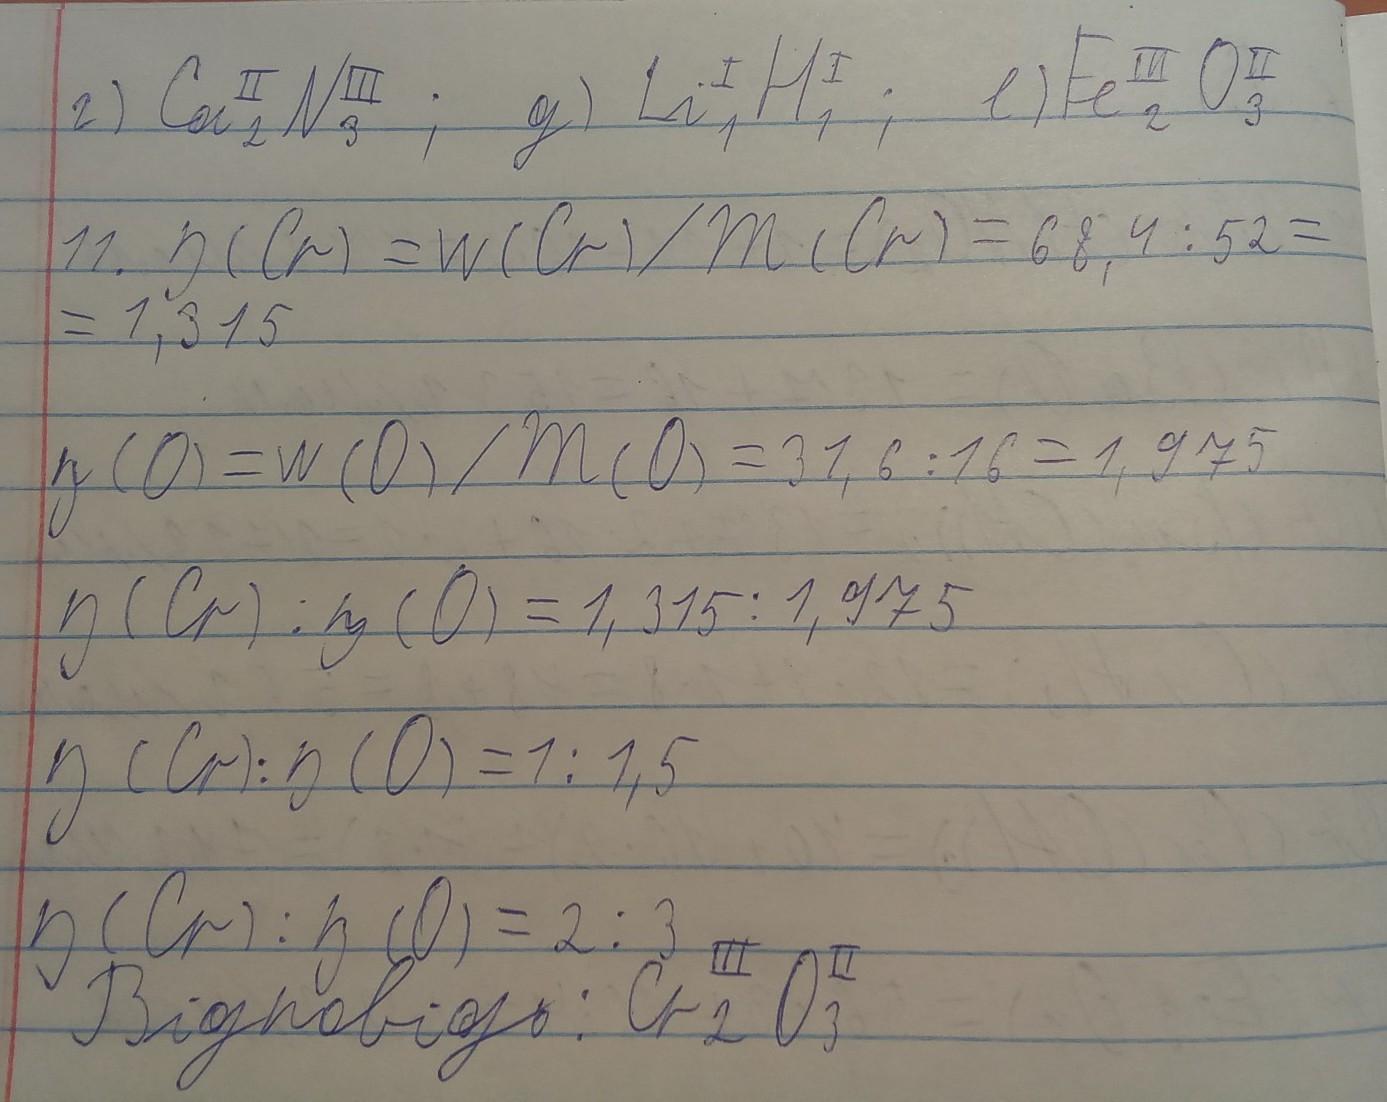 г) Ca₂ᴵᴵN₃ᴵᴵᴵ; д) Li₁ᴵH₁ᴵ; е) Fe₂ᴵᴵᴵO₃ᴵᴵ
11. n(Cr) = w(Cr)/M(Cr) = 68,4 : 52 =
= 1,315
n(O) = w(O)/M(O) = 31,6 : 16 = 1,975
n(Cr) : n(O) = 1,315 : 1,975
n(Cr) : n(O) = 1 : 1,5
n(Cr) : n(O) = 2 : 3
Відповідь: Cr₂ᴵᴵᴵO₃ᴵᴵ